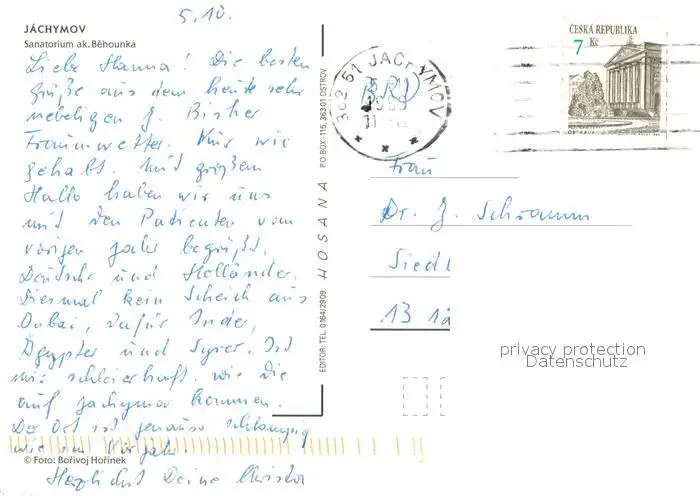 5.10.
JÁCHYMOV
Sanatorium ak. Běhounka
Liebe Hanna! Die besten
Grüße aus dem heute sehr
nebeligen J. Bisher
Traumwetter. Nur wie
gehabt. Mit großem
Hallo haben wir uns
mit den Patienten vom
vorigen Jahr begrüßt.
Deutsche und Holländer.
Diesmal kein Scheich aus
Dubai, dafür Inder,
Ägypter und Syrer. Ist
mir schleierhaft, wie die
auf Jachymov kommen.
Der Ort ist genauso schlampig
wie im Vorjahr.
Herzlichst Deine
© Foto: Bořivoj Hořínek
EDITOR: TEL. 0164/2909 HOSANA P.O.BOX 115, 363 01 OSTROV
362 51 JÁCHYMOV
BRD
ČESKÁ REPUBLIKA
7 Kč
OSTRAVA
Frau
Dr. J. Schramm
Siedl
13
privacy protection
Datenschutz